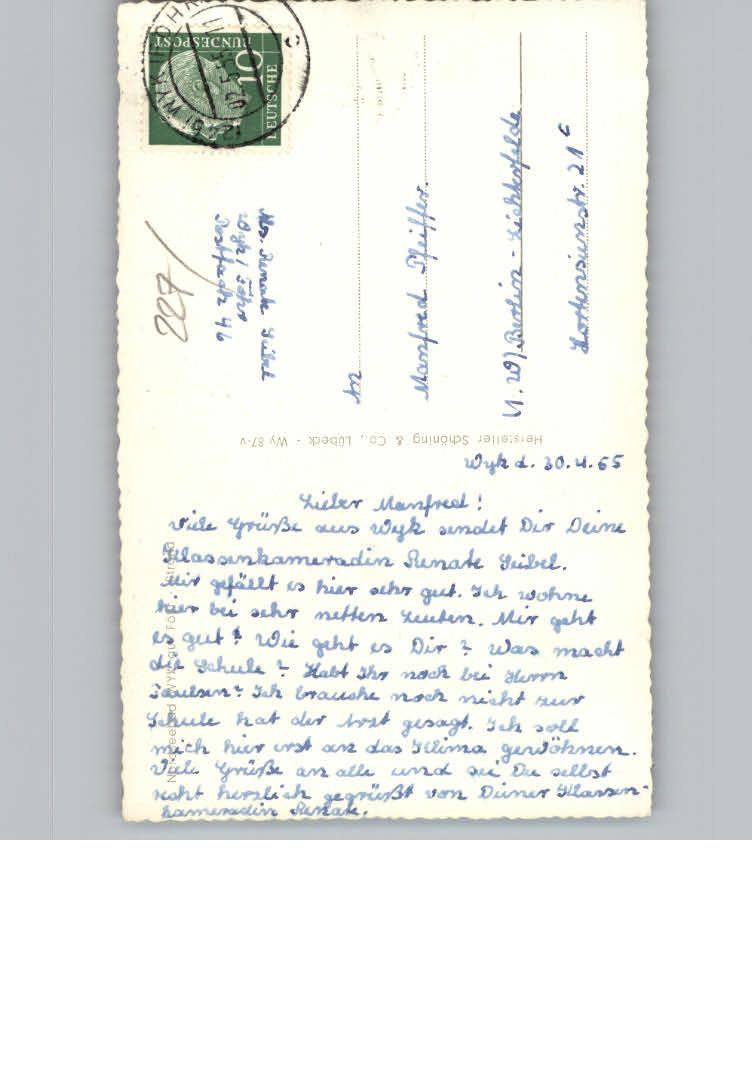 Wyk d. 30.4.65
Lieber Manfred!
Viele Grüße aus Wyk sendet Dir Deine
Klassenkameradin Renate Seibel.
Mir gefällt es hier sehr gut. Ich wohne
hier bei sehr netten Leuten. Mir geht
es gut! Wie geht es Dir? Was macht
die Schule? Habt Ihr noch bei Herrn
Paulsen? Ich brauche noch nicht zur
Schule hat der Arzt gesagt. Ich soll
mich hier erst an das Klima gewöhnen.
Viele Grüße an alle und sei Du selbst
recht herzlich gegrüßt von Deiner Klassen-
kameradin Renate.
Nordseebad Wyk auf Föhr,
Hersteller Schöning & Co., Lübeck - Wy 87-v
Abs. Renate Seibel
Wyk / Föhr
Postfach 46
227/
An
Manfred Pfeiffer.
(1. W) Berlin - Lichterfelde
Hortensienstr. 21 c
DEUTSCHE
BUNDESPOST
10
WYK
c